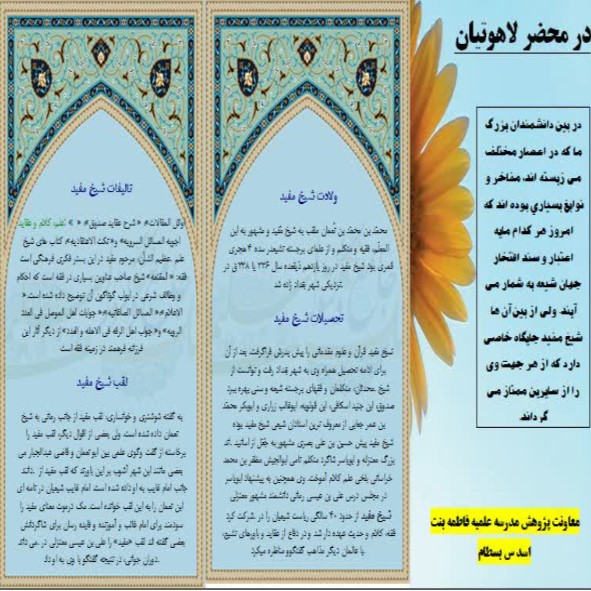 در محضر لاهوتیان
در بین دانشمندان بزرگ
ما که در اعصار مختلف
می زیسته اند، مفاخر و
نوابغ بسیاری بوده اند که
امروز هر کدام مایه
اعتبار و سند افتخار
جهان شیعه به شمار می
آیند. ولی از بین آن ها
شیخ مفید جایگاه خاصی
دارد که از هر جهت وی
را از سایرین ممتاز می
گرداند.
معاونت پژوهش مدرسه علمیه فاطمه بنت
اسد س بسطام
ولادت شیخ مفید
محمّد بن محمّد بن نُعمان ملقب به شیخ مُفید و مشهور به ابن
المعلّم، فقیه و متکلم و از علمای برجسته تشیعدر سده ۴ هجری
قمری بود شیخ مفید در روز یازدهم ذیقعده سال ۳۳۶ یا ۳۳۸ ق در
نزدیکی شهر بغداد زاده شد.
تحصیلات شیخ مفید
شیخ مفید قرآن و علوم مقدماتی را پیش پدرش فراگرفت. بعد از آن
برای ادامه تحصیل همراه وی به شهر بغداد رفت و توانست از
شیخ محدثان، متکلمان و فقهای برجسته شیعه و سنی بهره ببرد
صدوق، ابن جنید اسکافی، ابن قولویه، ابوغالب زراری و ابوبکر محمّد
بن عمر جعابی از معروف ترین استادان شیعی شیخ مفید بوده
شیخ مفید پیش حسین بن علی بصری مشهور به جُعَل از اساتید اند.
بزرگ معتزله و ابویاسر شاگرد متکلم نامی ابوالجیش مظفر بن محمد
خراسانی بلخی علم کلام آموخت. وی همچنین به پیشنهاد ابویاسر
در مجلس درس علی بن عیسی رمانی دانشمند مشهور معتزلی
شیخ مفید از حدود ۴۰ سالگی ریاست شیعیان را در شرکت کرد.
فقه، کلام و حدیث عهده دار شد و در دفاع از عقاید و باورهای تشیع،
با عالمان دیگر مذاهب گفتگوو مناظره میکرد.
تالیفات شیخ مفید
اوائل المقالات»، « شرح عقاید صدوق»، « » علم، کلام و عقاید
اجوبه المسائل السرویه» و«نکت الاعتقادیه»، کتاب های شیخ
علم عظیم الشأن، مرحوم مفید در این بستر فکری فرهنگی است
فقه: « المقنعه» شیخ صاحب عناوین بسیاری در فقه است که احکام
و وظائف شرعی در ابواب گوناگون آن توضیح داده شده است.«
الاعلام»،« المسائل الصاغانیه»،« جوابات اهل الموصل فی العدد
الرویه» و« جواب اهل الرقه فی الاهله و العدد» از دیگر آثار این
فرزانه فرهمند در زمینه فقه است
لقب شیخ مفید
به گفته شوشتری و خوانساری، لقب مفید از جانب رمانی به شیخ
نعمان داده شده است. ولی بعضی از اقوال دیگر، لقب مفید را
برخاسته از گفت وگوی علمی بین ابو نعمان و قاضی عبدالجبار می
بعضی مانند ابن شهر آشوب بر این باورند که لقب مفید از دانند.
جانب امام غایب به او داده شده است. امام غایب شیعیان در نامه ای
ابن نعمان را به این لقب خوانده است. مک درموت معنای مفید را
سودمند برای امام غائب و آموزنده و فایده رسان برای شاگردانش
بعضی گفته اند لقب «مفید» را علی بن عیسی معتزلی در می داند.
دوران جوانی، در نتیجه گفتگو با وی به او داد.